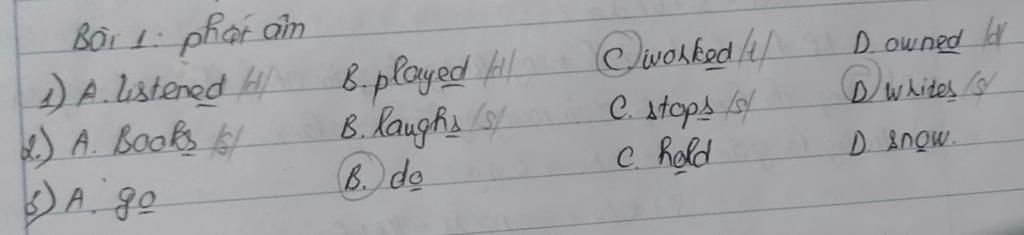 Bài 1: phát âm
1) A. listened /d/ B. played /d/ C. worked /t/ D. owned /d/
2.) A. Books /s/ B. laughs /s/ C. stops /s/ D. writes /s/
3) A. go B. do C. hold D. snow.